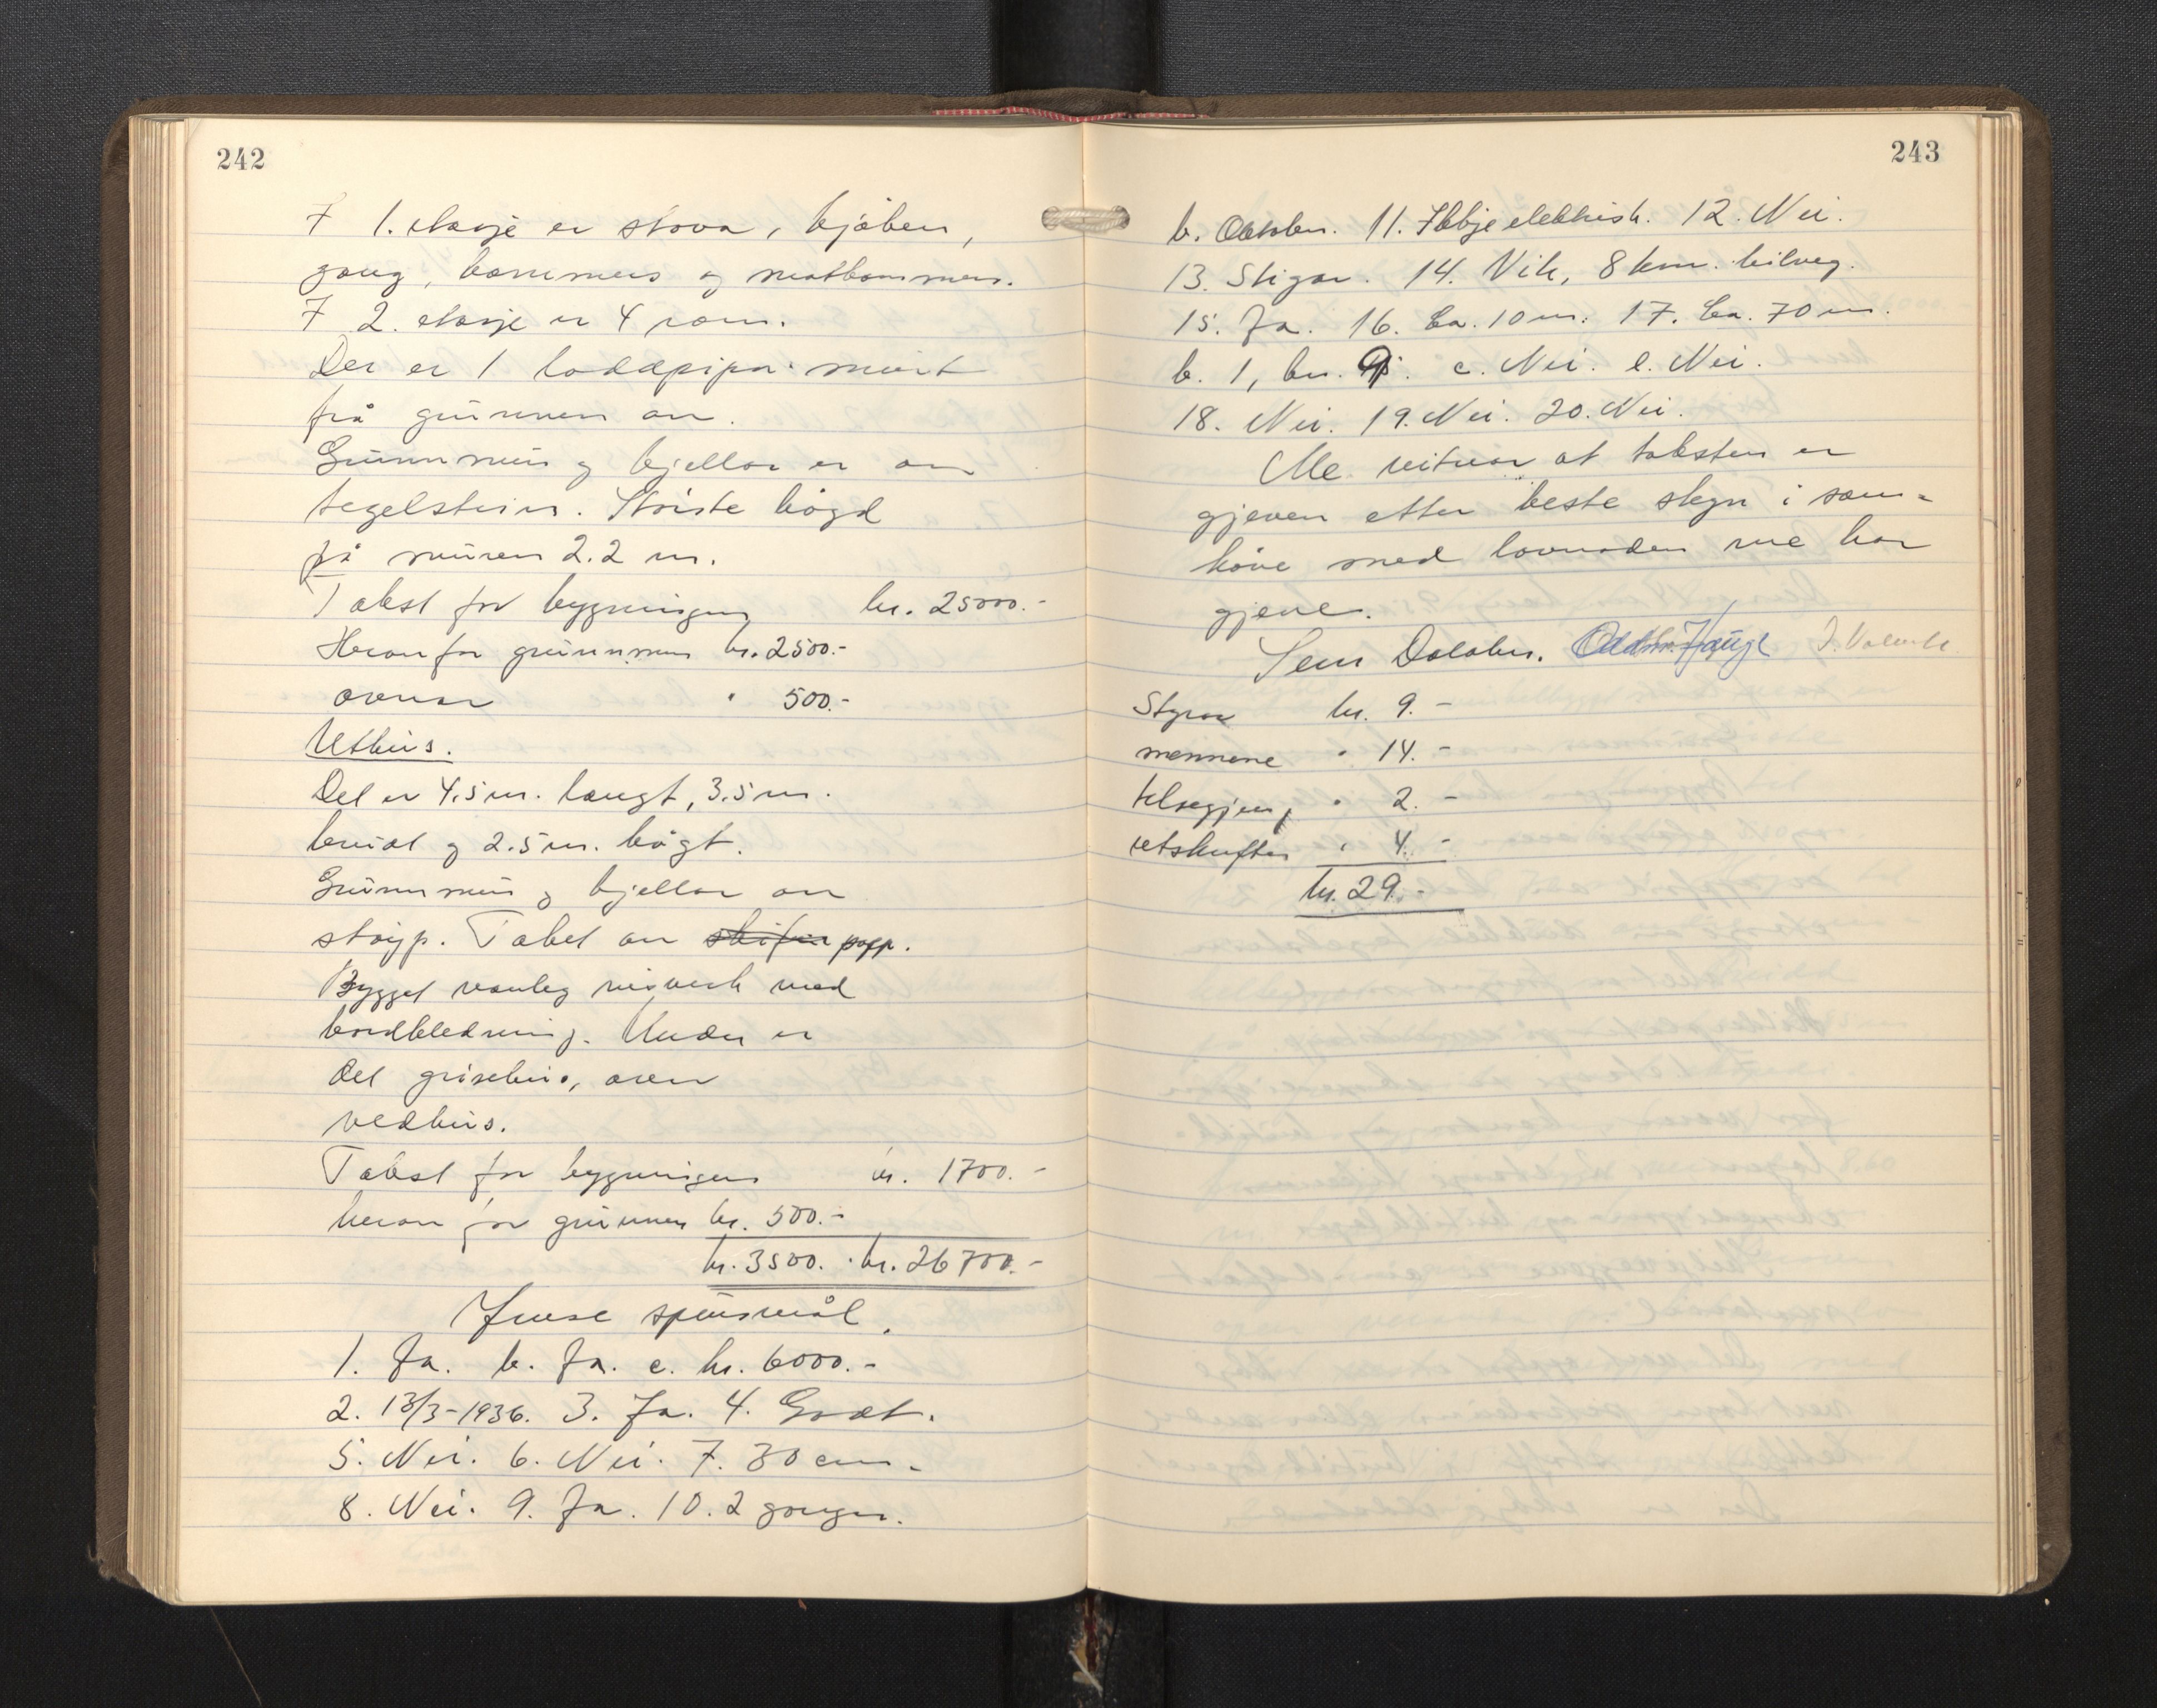 242
I 1. etasje er stova, kjøken,
gang, kammers og matkammers.
I 2. etasje er 4 rom.
Der er 1 loddpipa murt
frå grunnen av.
Grunnmur og kjellar er av
tegelstein. Største høgd
på muren 2.2 m.
Takst for bygningen kr. 25000.-
Herav for grunnmur kr. 2500.-
ovnar " 500.-
Uthus.
Det er 4.5 m. langt, 3.5 m.
breidt og 2.5 m. høgt.
Grunnmur og kjellar av
støyp. Taket av skifer papp.
Bygget vanleg reisverk med
bordkledning. Under er
det grisehus, oven
vedhus.
Takst for bygningen kr. 1700.-
herav for grunnen kr. 500.-
kr. 3500. kr. 26700.-
Ymse spursmål.
1. Ja. b. Ja. c. kr. 6000.-
2. 13/3-1936. 3. Ja. 4. Godt.
5. Nei. 6. Nei. 7. 30 cm.
8. Nei. 9. Ja. 10. 2 gonger.
243
b. Oktober. 11. Ikkje elektrisk. 12. Nei.
13. Stigar. 14. Vik, 8 km. bilveg.
15. Ja. 16. Ca. 10 m. 17. Ca. 70 m.
b. 1, br. 9. c. Nei. e. Nei.
18. Nei. 19. Nei. 20. Nei.
Me vitnar at taksten er
gjeven etter beste skyn i sam=
høve med lovnaden me har
gjeve.
Odd Haugl
Styrar kr. 9.-
mennene " 14.-
telsegjeng " 2.-
utskrifter " 4.-
kr. 29.-